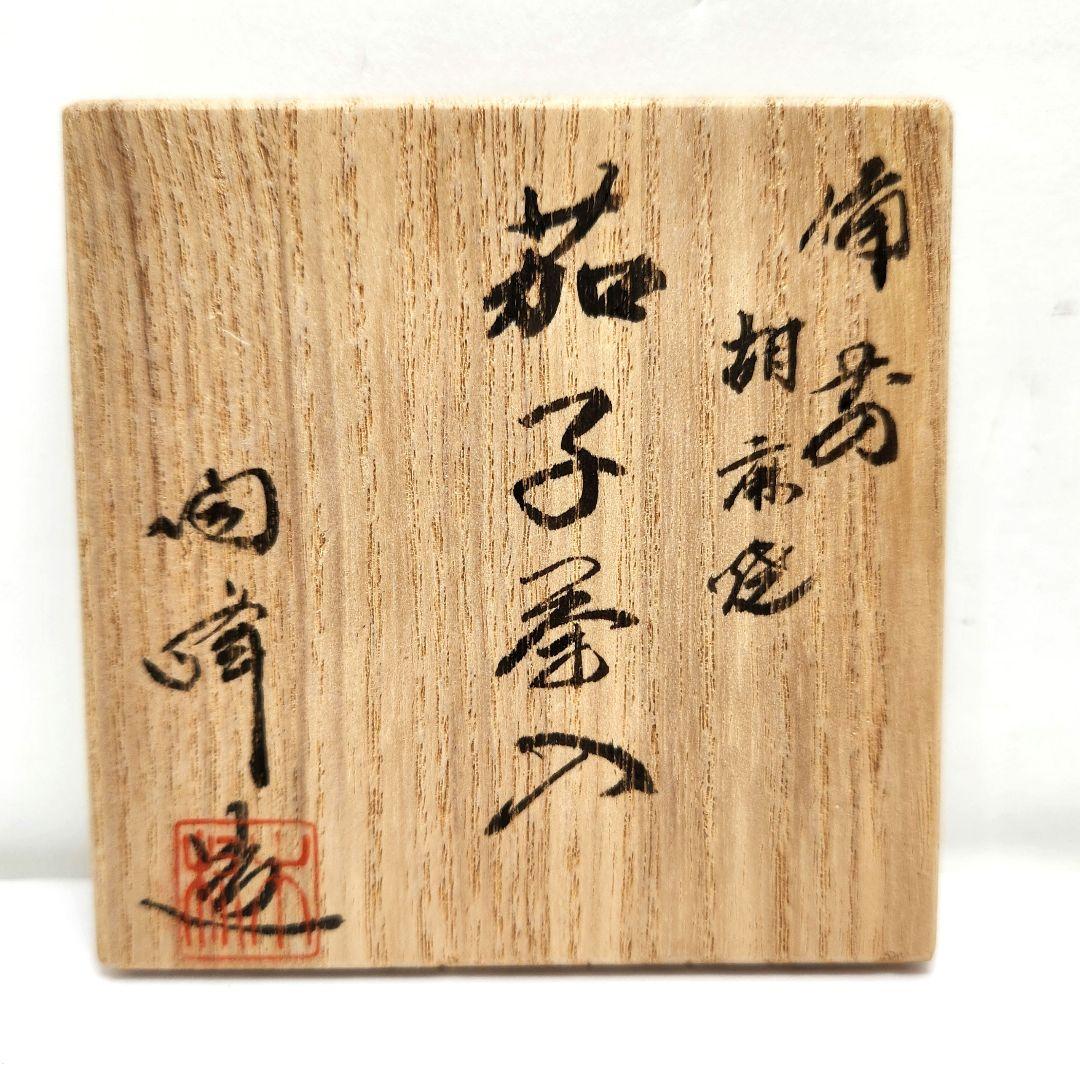 備前
胡麻焼
茄子茶入
陶峰造